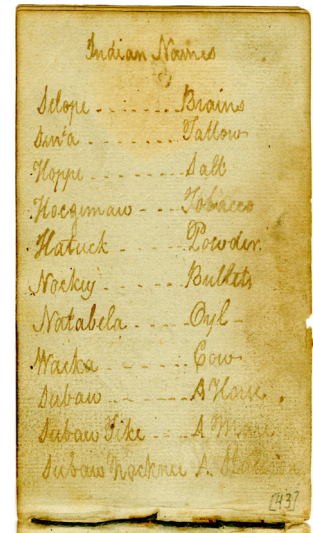 Indian Names
Selope - - - - - - Brains
- - - - - - Tallow
Hoppe - - - - - Salt
Hocgumaw - - - Tobacco
Hatuck - - - - Powder
Nockey - - - - Bullets
Natabela - - - - Oyl
Wacka - - - - Cow
Subaw - - - - - A Horse
Subaw Tike - - - A Mare
Subaw Nacknee A. Stallion
[43]